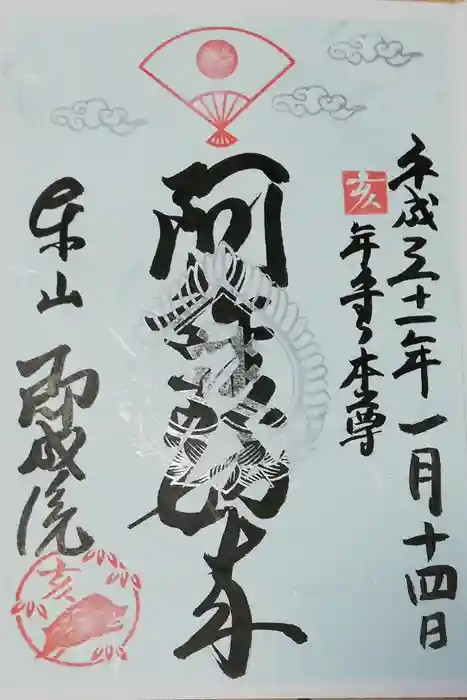 平成三十一年一月十四日
亥
年守り本尊
阿弥陀如来
泉山 即成院
亥